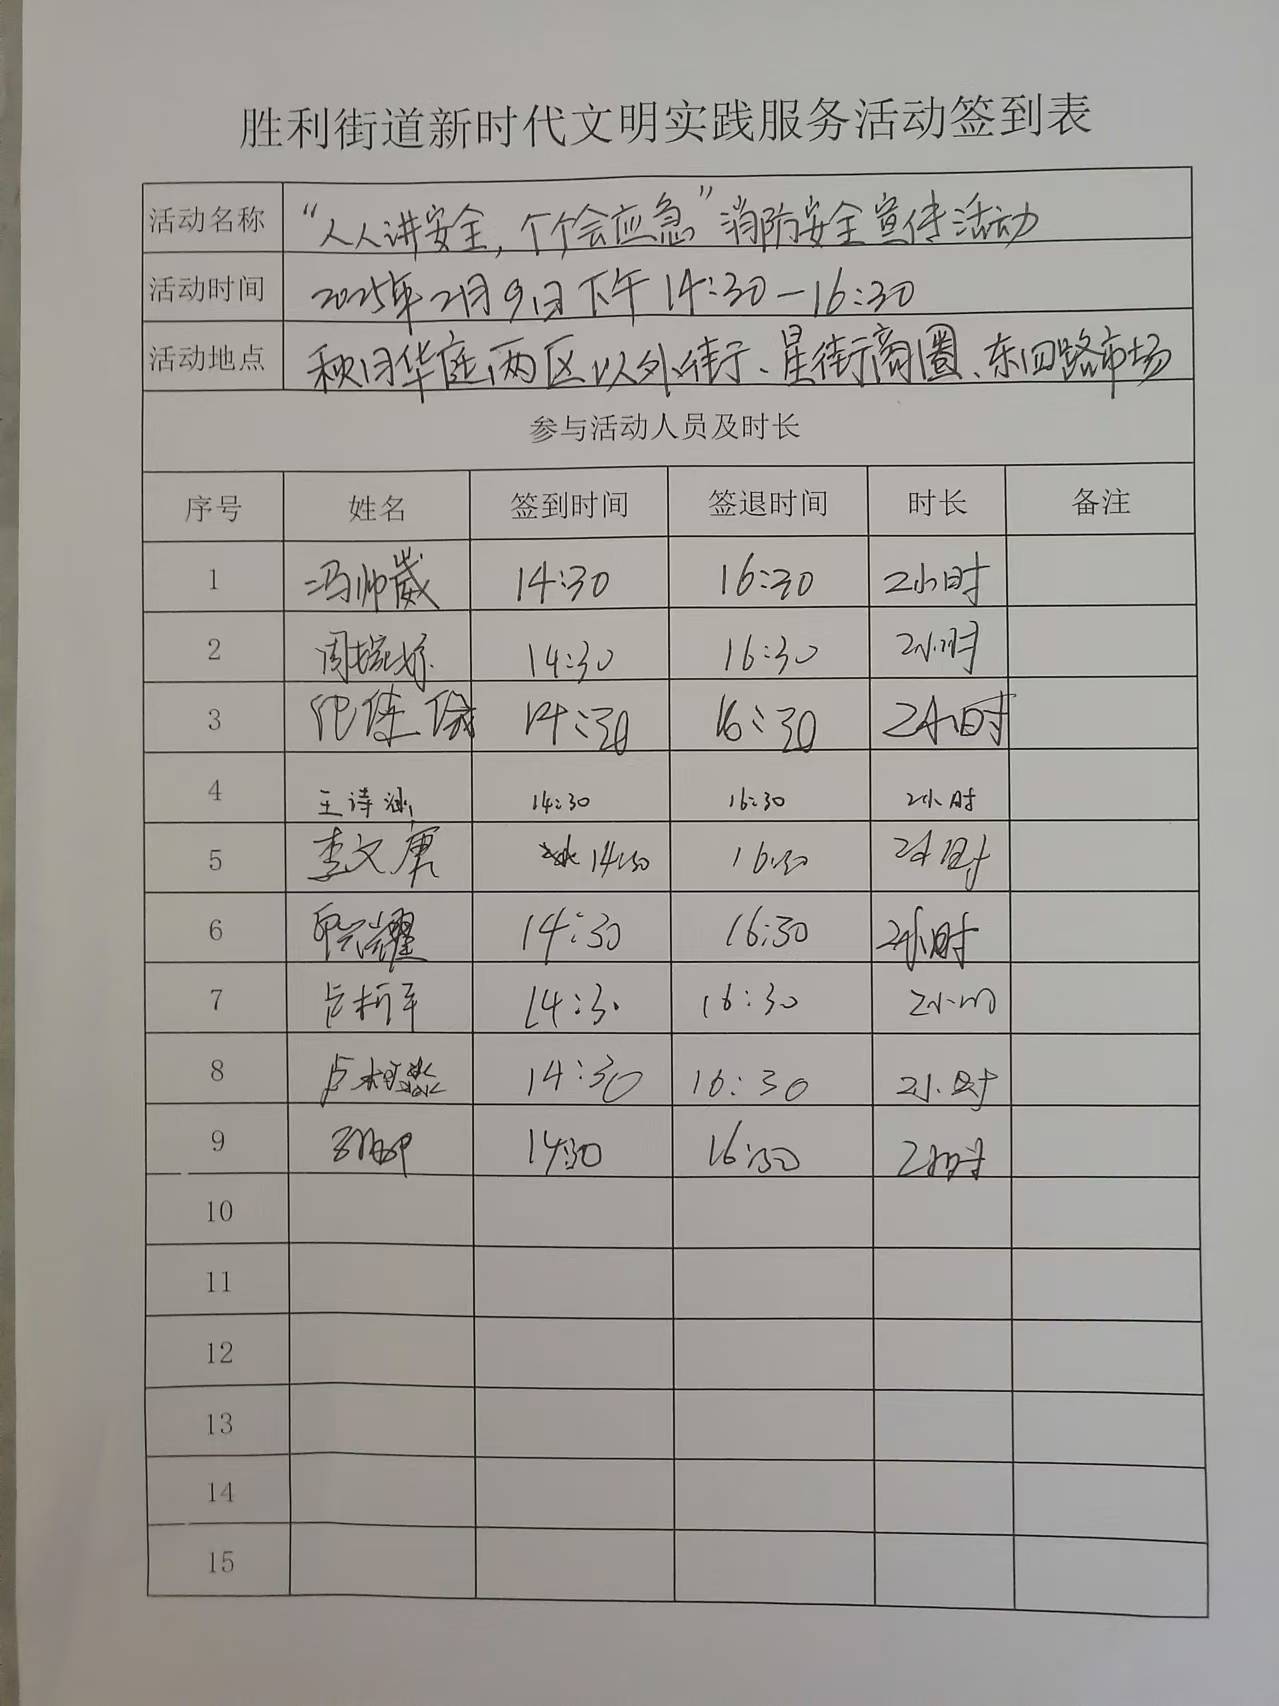 胜利街道新时代文明实践服务活动签到表
活动名称 “人人讲安全,个个会应急”消防安全宣传活动
活动时间 2025年2月9日下午14:30—16:30
活动地点 秋月华庭两区以外街、星街商圈、东四路市场
参与活动人员及时长
序号 姓名 签到时间 签退时间 时长 备注
1 冯帅崴 14:30 16:30 2小时
2 周 14:30 16:30 2小时
3 佳 14:30 16:30 2小时
4 王诗涵 14:30 16:30 2小时
5 李文 14:30 16:30 2小时
6 耀 14:30 16:30 2小时
7 卢 14:30 16:30 2小时
8 卢 14:30 16:30 2小时
9 14:30 16:30 2小时
10
11
12
13
14
15